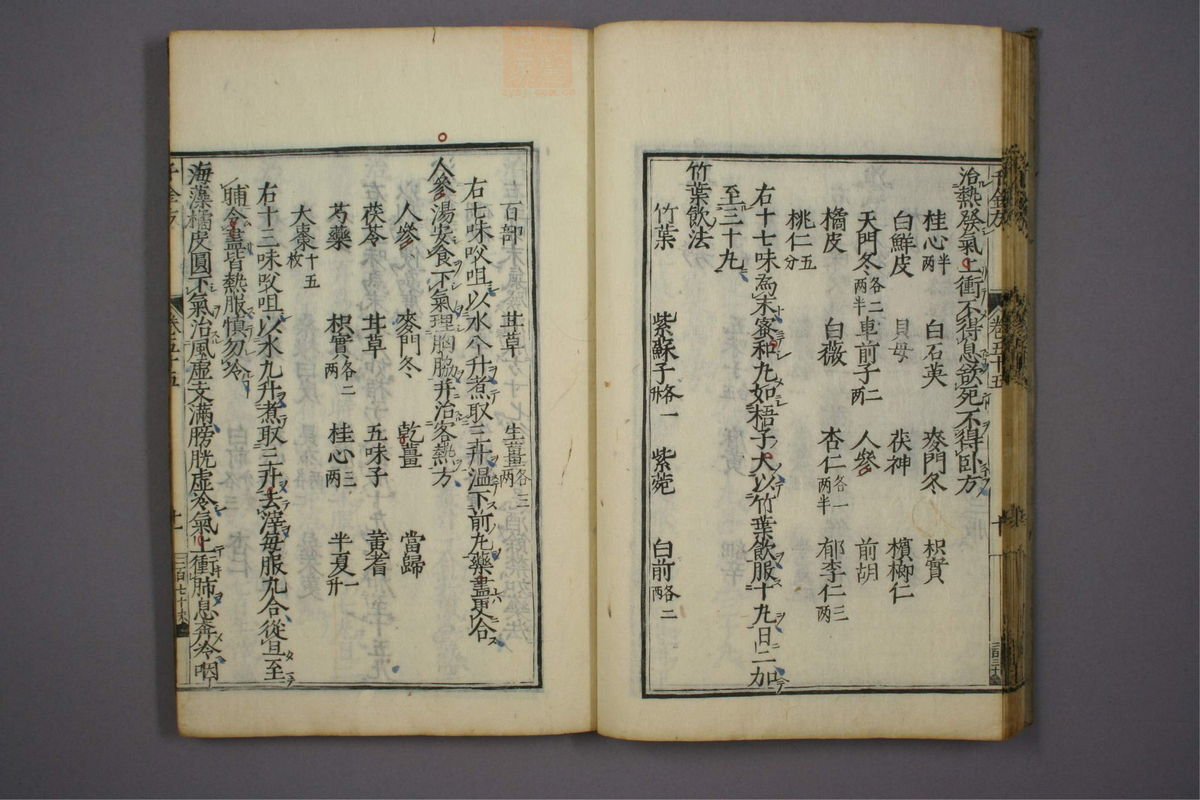 治熱發氣上衝不得息欲死不得臥方
桂心半兩 白石英 麥門冬 枳實
白鮮皮 貝母 茯神 檳榔仁
天門冬各二兩半 車前子二兩 人參 前胡
橘皮 白薇 杏仁各一兩半 郁李仁三兩
桃仁五分
右十七味爲末蜜和丸如梧子大以竹葉飲服十丸日二加
至三十丸
竹葉飲法
竹葉 紫蘇子各一升 紫菀 白前各二兩
百部 甘草 生薑各三兩
右七味㕮咀以水八升煮取三升溫下前丸藥盡更合
人參湯安食下氣理胸脇并治客熱方
人參 麥門冬 乾薑 當歸
茯苓 甘草 五味子 黃耆
芍藥 枳實各二兩 桂心三兩 半夏一升
大棗十五枚
右十三味㕮咀以水九升煮取三升去滓每服九合從旦至
晡令盡皆熱服慎勿冷
海藻橘皮圓下氣治風虛支滿膀胱虛冷氣上衝肺息奔令咽
千金方 卷五十五